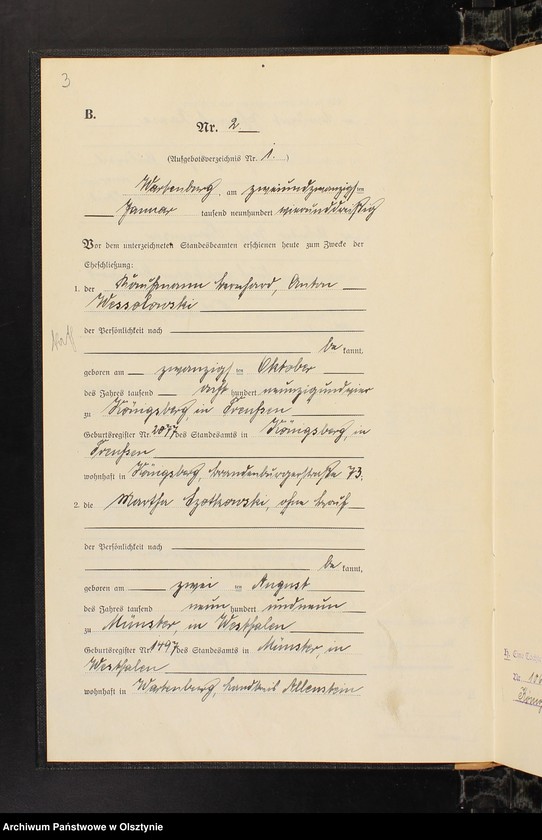 3
B.
Nr. 2
(Aufgebotsverzeichnis Nr. 1.)
Wartenberg, am zweiundzwanzigsten
Januar tausend neunhundert vierunddreißig
Vor dem unterzeichneten Standesbeamten erschienen heute zum Zwecke der
Eheschließung:
1. der Kaufmann Bernhard, Anton
Wessolowski
der Persönlichkeit nach
kath
be kannt,
geboren am zwanzigsten Oktober
des Jahres tausend acht hundert neunzigundvier
zu Königsberg, in Preußen
Geburtsregister Nr. 2077 des Standesamts in Königsberg, in
Preußen
wohnhaft in Königsberg, Brandenburgerstraße 73.
2. die Martha Szotkowski, ohne Beruf
der Persönlichkeit nach
be kannt,
geboren am zwei ten August
des Jahres tausend neun hundert undneun
zu Münster, in Westfalen
Geburtsregister Nr. 1497 des Standesamts in Münster, in
Westfalen
wohnhaft in Wartenberg, Landkreis Allenstein
Archiwum Państwowe w Olsztynie